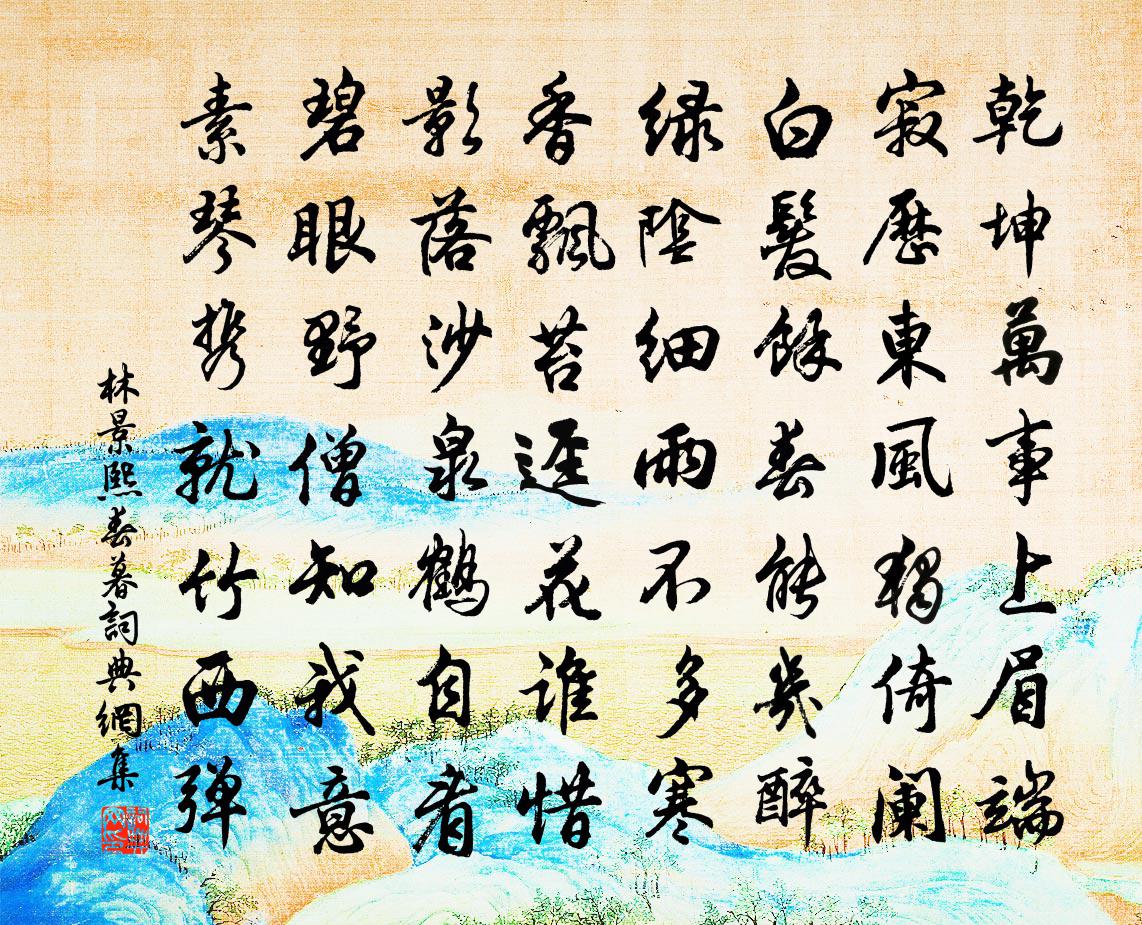 乾坤萬事上眉端
寂歷東風獨倚闌
白髮餘春能幾醉
緑陰細雨不多寒
香飄苔逕花誰惜
影落沙泉鶴自看
碧眼野僧知我意
素琴携就竹西彈
林景熙春暮詞典網集